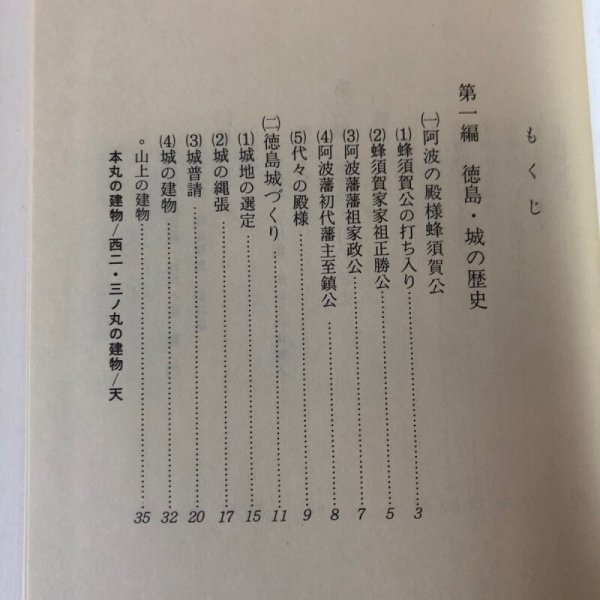 もくじ
第一編 徳島・城の歴史
㈠阿波の殿様蜂須賀公
⑴蜂須賀公の打ち入り 3
⑵蜂須賀家家祖正勝公 5
⑶阿波藩藩祖家政公 7
⑷阿波藩初代藩主至鎮公 8
⑸代々の殿様 9
㈡徳島城づくり 11
⑴城地の選定 15
⑵城の縄張 17
⑶城普請 20
⑷城の建物 32
。山上の建物 35
本丸の建物/西二・三ノ丸の建物/天